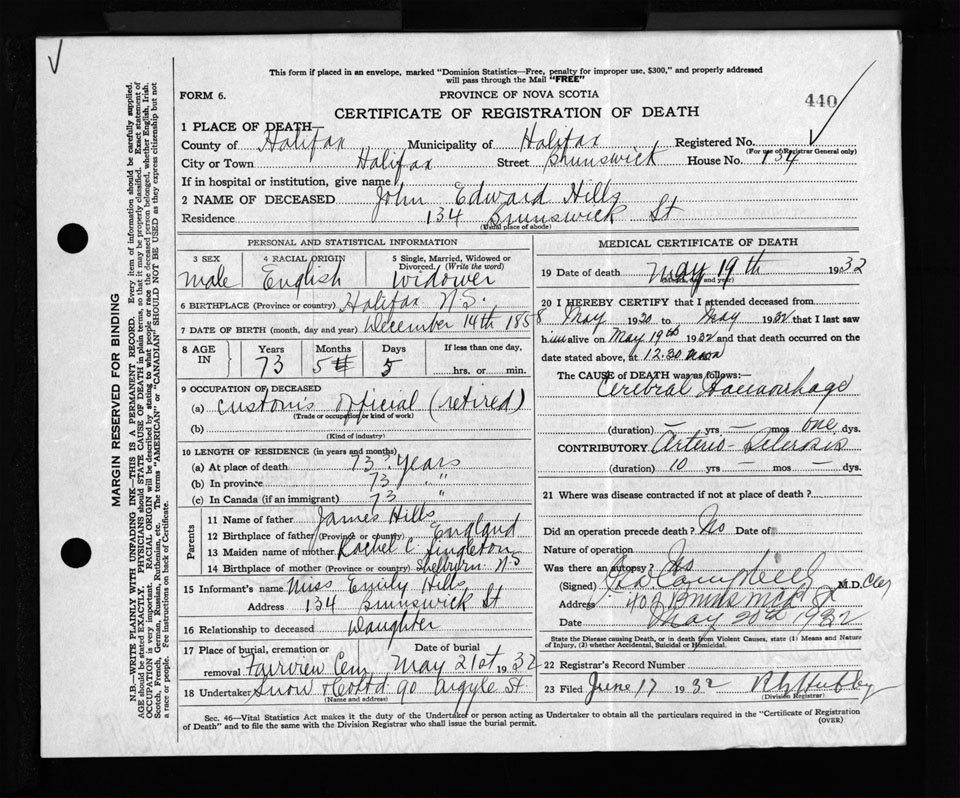 This form if placed in an envelope, marked "Dominion Statistics—Free, penalty for improper use, $300," and properly addressed
will pass through the Mail "FREE"
FORM 6.
PROVINCE OF NOVA SCOTIA
440
CERTIFICATE OF REGISTRATION OF DEATH
1 PLACE OF DEATH—
County of Halifax Municipality of Halifax Registered No.
(For use of Registrar General only)
City or Town Halifax Street Brunswick House No. 134
If in hospital or institution, give name
2 NAME OF DECEASED John Edward Hills
Residence 134 Brunswick St
(Usual place of abode)
PERSONAL AND STATISTICAL INFORMATION
3 SEX 4 RACIAL ORIGIN 5 Single, Married, Widowed or
Divorced. (Write the word)
Male English Widower
6 BIRTHPLACE (Province or country) Halifax N.S.
7 DATE OF BIRTH (month, day and year) December 14th 1858
8 AGE IN Years Months Days If less than one day,
73 5 5 hrs. or min.
9 OCCUPATION OF DECEASED
(a) Customs Official (retired)
(Trade or occupation or kind of work)
(b)
(Kind of industry)
10 LENGTH OF RESIDENCE (in years and months)
(a) At place of death 73 Years
(b) In province 73 "
(c) In Canada (if an immigrant) 73 "
Parents
11 Name of father James Hills
12 Birthplace of father (Province or country) England
13 Maiden name of mother Rachel C Singleton
14 Birthplace of mother (Province or country) Shelburn N-S
15 Informant's name Miss Emily Hills
Address 134 Brunswick St
16 Relationship to deceased Daughter
17 Place of burial, cremation or Date of burial
removal Fairview Cem May 21st 1932
18 Undertaker Snow & Co Ltd 90 Argyle St
(Name and address)
MEDICAL CERTIFICATE OF DEATH
19 Date of death May 19th 1932
(Month, day and year)
20 I HEREBY CERTIFY that I attended deceased from
May 1930 to May 1932 that I last saw
him alive on May 19th 1932 and that death occurred on the
date stated above, at 12.30 noon
The CAUSE of DEATH was as follows:—
Cerebral Haemorrhage
(duration) — yrs — mos one dys.
CONTRIBUTORY Arterio-Sclerosis
(duration) 10 yrs — mos — dys.
21 Where was disease contracted if not at place of death?
Did an operation precede death? No Date of
Nature of operation
Was there an autopsy? No
(Signed) Campbell M.D.
Address
Date May 20th 1932
State the Disease causing Death, or in death from Violent Causes, state (1) Means and Nature
of Injury, (2) whether Accidental, Suicidal or Homicidal.
22 Registrar's Record Number
23 Filed June 17 1932
(Division Registrar)
Sec. 46—Vital Statistics Act makes it the duty of the Undertaker or person acting as Undertaker to obtain all the particulars required in the "Certificate of Registration
of Death" and to file the same with the Division Registrar who shall issue the burial permit.
(OVER)
MARGIN RESERVED FOR BINDING
N.B.—WRITE PLAINLY WITH UNFADING INK—THIS IS A PERMANENT RECORD. Every item of information should be carefully supplied.
AGE should be stated EXACTLY. PHYSICIANS should STATE CAUSE OF DEATH in plain terms, so that it may be properly classified. Exact statement of
OCCUPATION is very important. RACIAL ORIGIN will be described by stating to what people or race the deceased person belonged, whether English, Irish,
Scotch, French, German, Russian, Ruthenian, etc. The terms "AMERICAN" or "CANADIAN" SHOULD NOT BE USED as they express citizenship but not
a race or people. See instructions on back of Certificate.